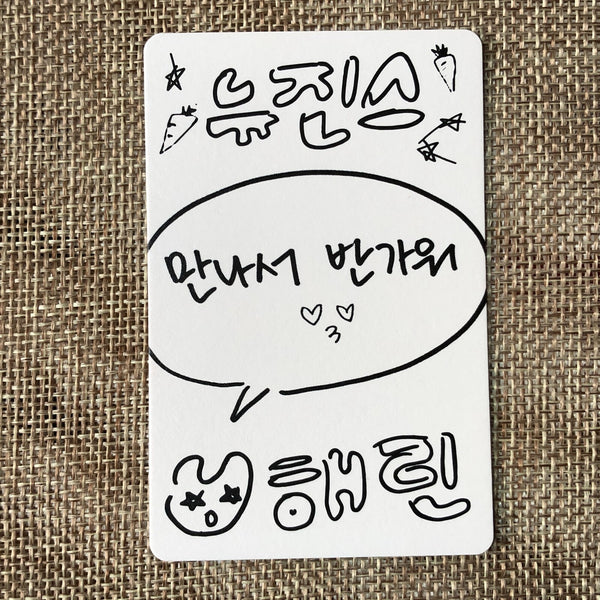 뉴진스
만나서 반가워
해린